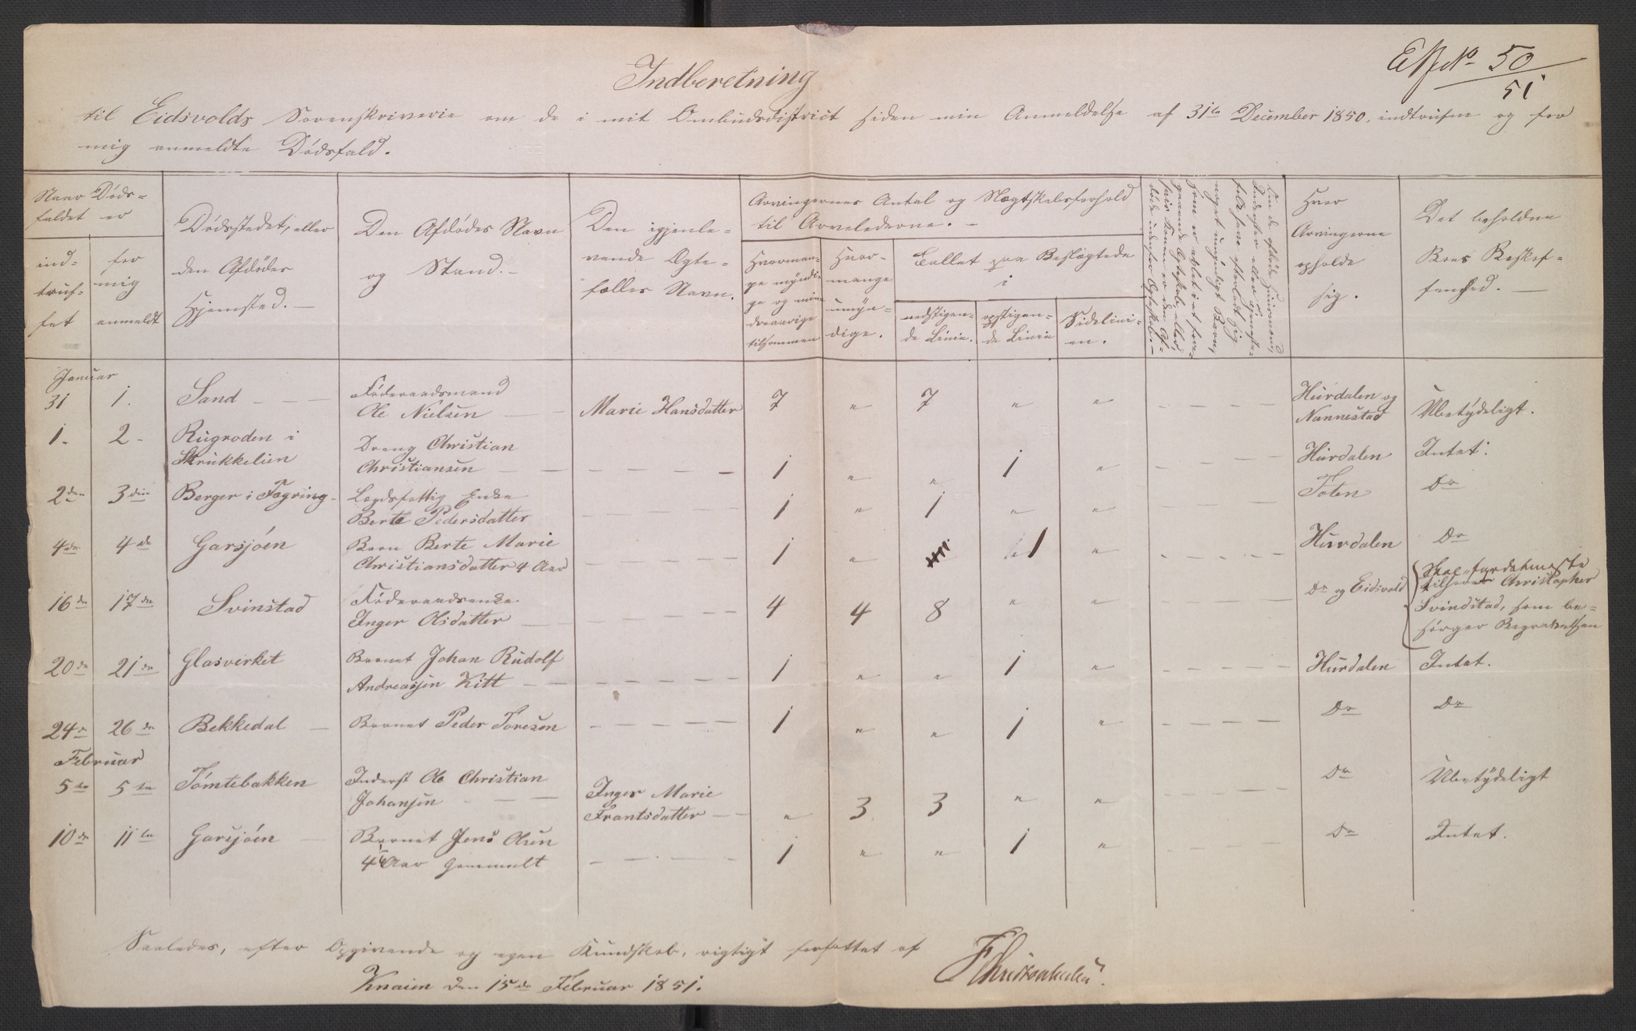 No 50
51
Indberetning
til Eidsvolds Sorenskriverie om de i mit Ombudsdistrict siden min Anmeldelse af 31te December 1850 indtrufne og for
mig anmeldte Dødsfald.
Naar Døds-
faldet er
ind-
truf-
fet
for
mig
anmeldt
Dødsstedet, eller
den Afdødes
Hjemsted.
Den Afdødes Navn
og Stand.
Den igjenle-
vende Ægte-
fælles Navn.
Arvingernes Antal og Slægtskabsforhold
til Arveladeren.
Hvorman-
ge myndi-
ge og min-
dreaarige
tilsammen
Hvor-
mange
umyn-
dige.
Callet paa Beslægtede
i
nedstigen-
de Linie.
opstigen-
de Linie
Sidelini-
en.
Hvor
Arvingerne
opholde
sig.
Det beholdne
Boes Beskaf-
fenhed.
Januar
31 1. Sand Føderaadsmand
Ole Nielsen Marie Hansdatter 7 " 7 " " Hurdalen og
Nannestad Ubetydeligt.
1. 2 Rugroden i
Skrukkelien Dreng Christian
Christiansen 1 " " 1 " Hurdalen Intet.
2den 3die Berger i Fogring Lægdsfattig Enke
Berte Pedersdatter 1 " 1 " " Toten Do
4de 4de Garsjøen Barn Berte Marie
Christiansdatter 4 Aar 1 " 1 " Hurdalen Do
16de 17de Svinstad Føderaadsenke
Inger Olsdatter 4 4 8 " " Do og Eidsvold
tilhører Christopher
Svindstad, som be-
sørger Begravelsen
20de 21de Glasværket Barnet Johan Rudolf
Andreassen Kitt 1 " " 1 " Hurdalen Intet.
24de 26de Bekkedal Barnet Peder Toresen 1 " " 1 " Do Do
Februar
5te 5te Tømtebakken Inderst Ole Christian
Johansen Inger Marie
Frantsdatter " 3 3 " " Do Ubetydeligt
10de 11te Garsjøen Barnet Jens Olsen
4 Aar Gammelt 1 " " 1 " Do Intet.
Saaledes, efter Opgivende og egen Kundskab, rigtigt forfattet af
Knaien den 15de Februar 1851.